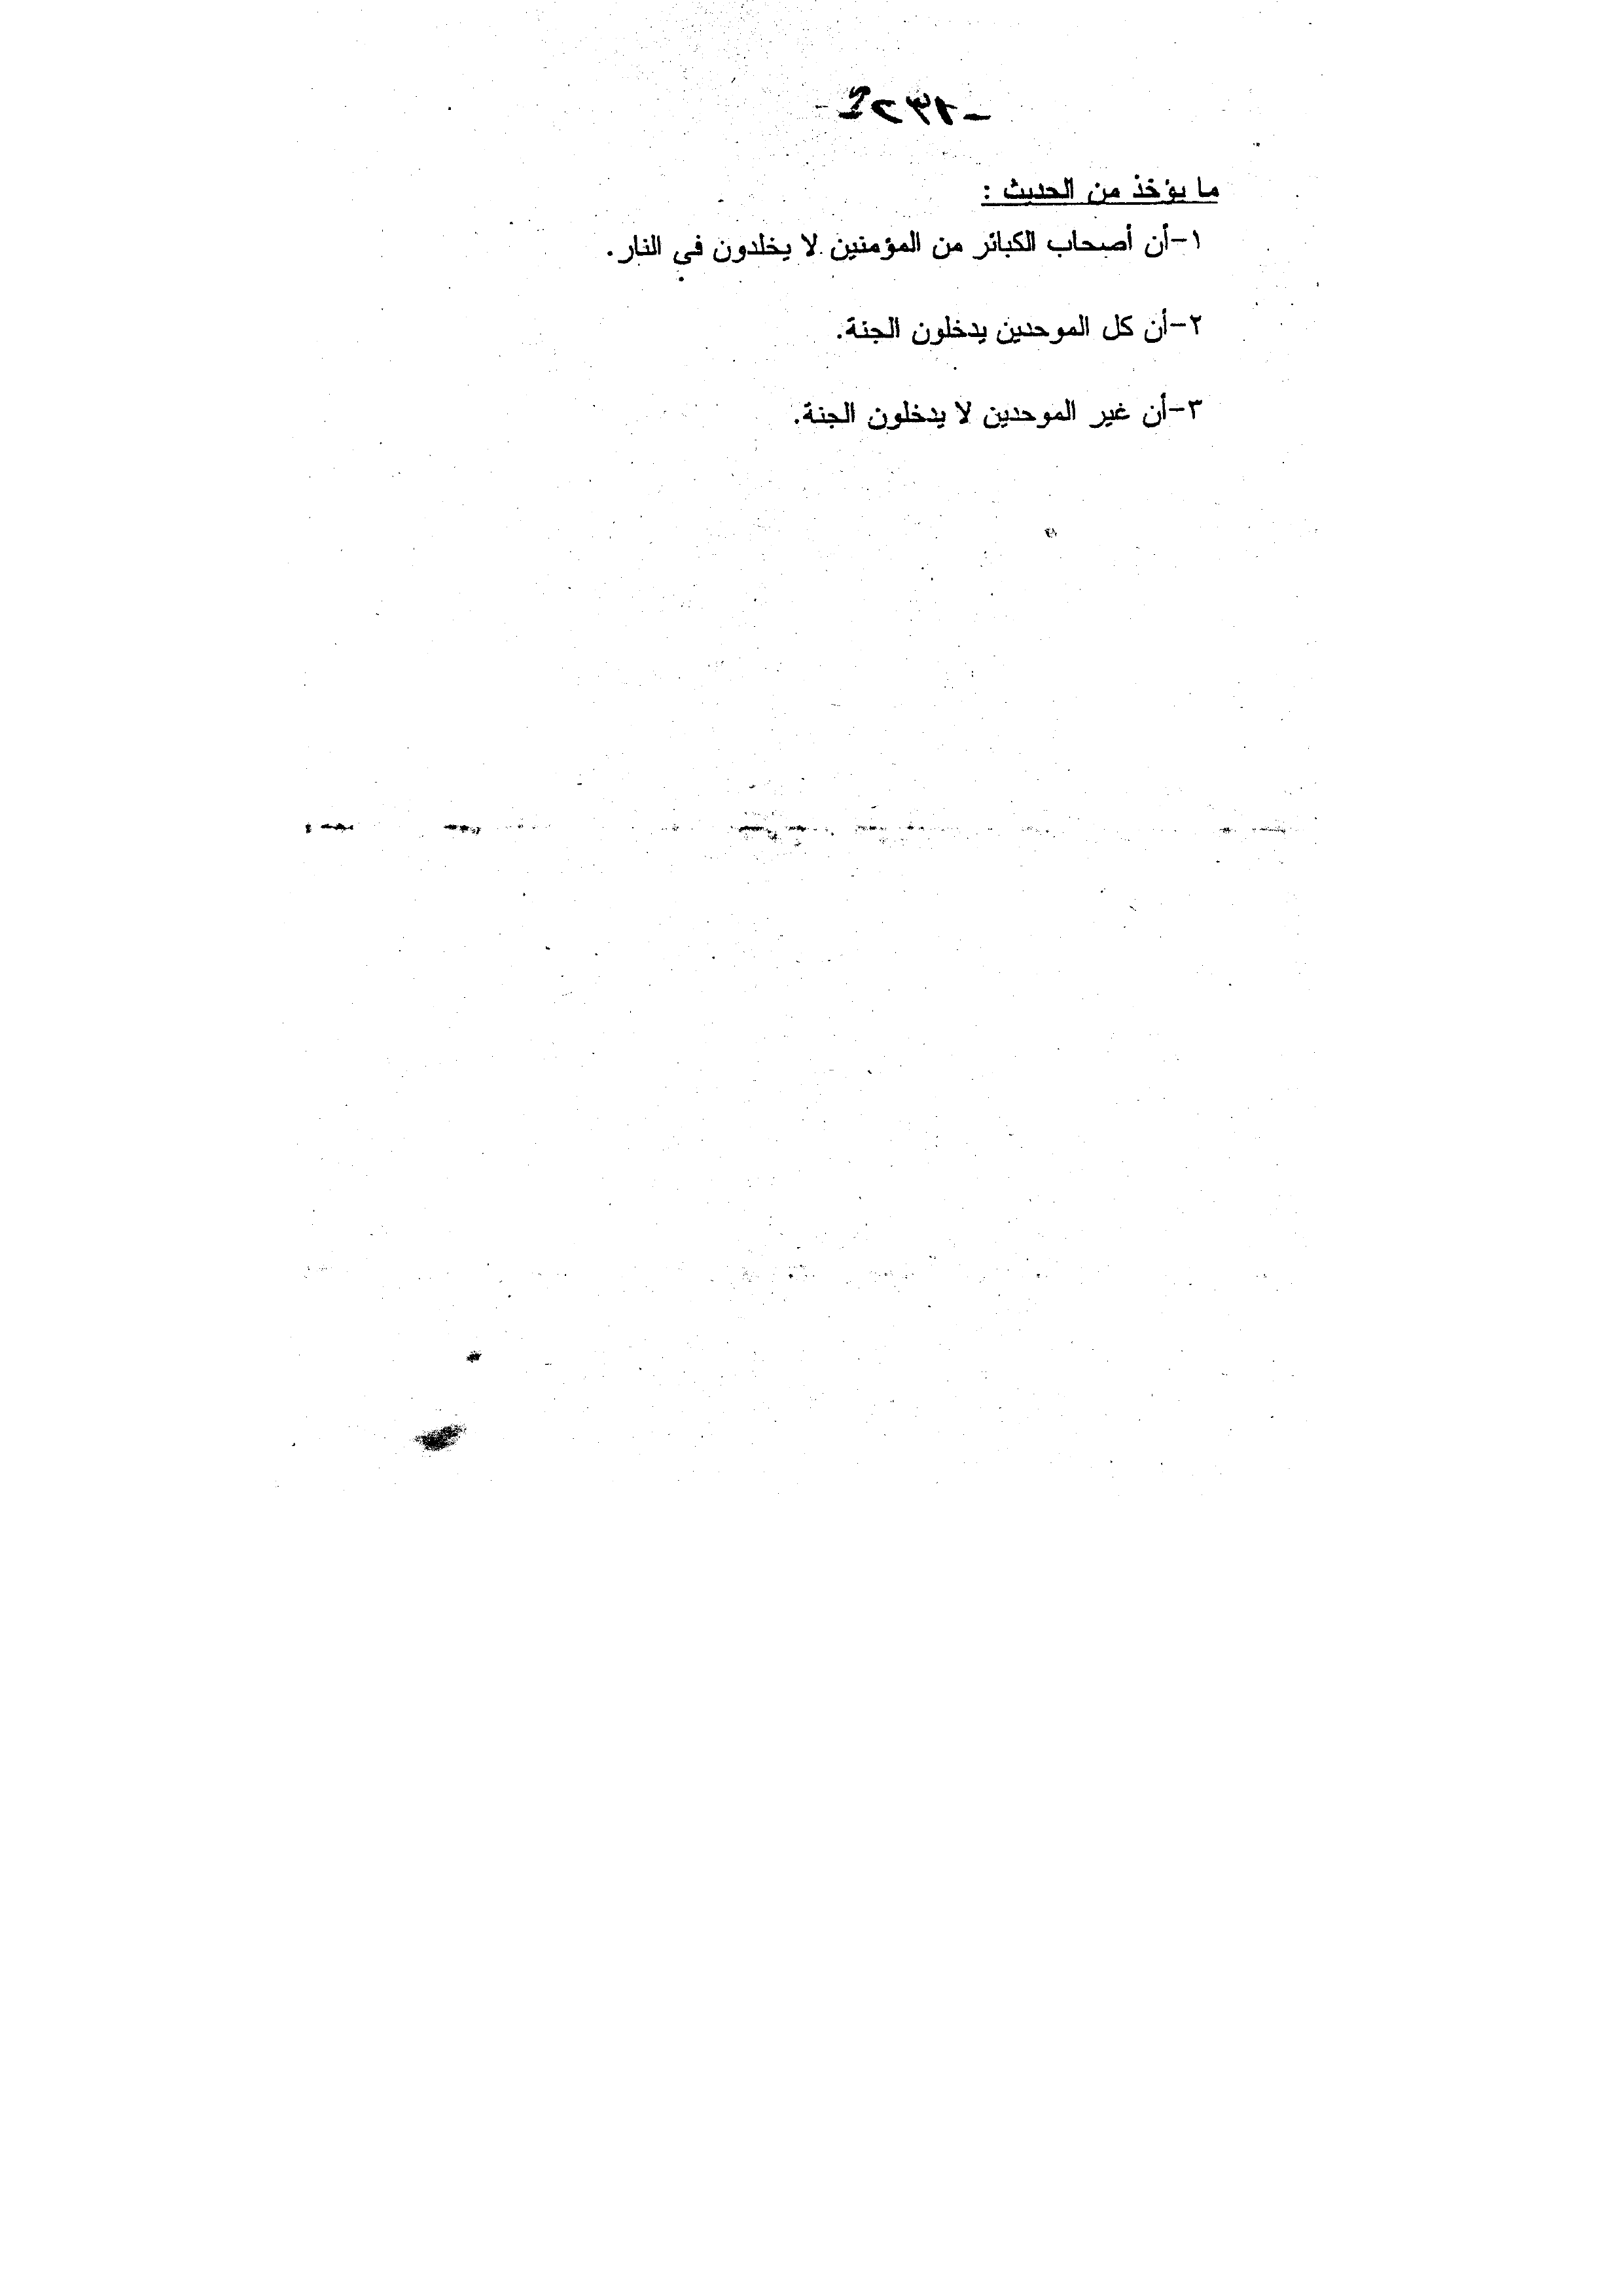 ما يؤخذ من الحديث :
١-أن أصحاب الكبائر من المؤمنين لا يخلدون في النار.
٢-أن كل الموحدين يدخلون الجنة.
٣-أن غير الموحدين لا يدخلون الجنة.